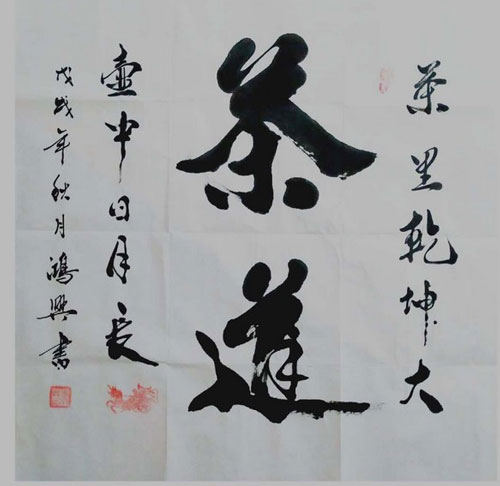 茶里乾坤大
茶道
壶中日月长
戊戌年秋月鴻興書